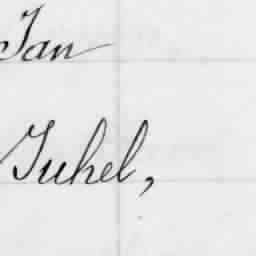 Jan
Juhel,